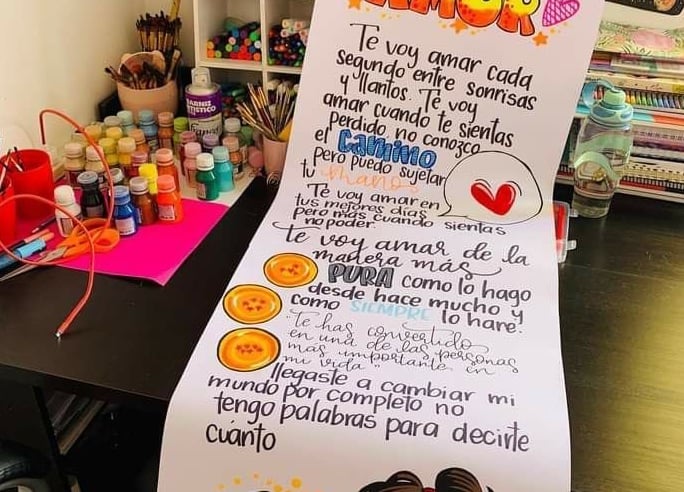 AMOR
Te voy amar cada
segundo entre sonrisas
y llantos. Te voy
amar cuando te sientas
perdido, no conozco
el Camino
pero puedo sujetar
tu mano
Te voy amar en
tus mejores dias
pero más cuando sientas
no poder.
te voy amar de la
manera más
PURA como lo hago
desde hace mucho y
como SIEMPRE lo haré.
"Te has convertido
en una de las personas
más importante en
mi vida"
llegaste a cambiar mi
mundo por completo no
tengo palabras para decirte
cuánto
BARNIZ